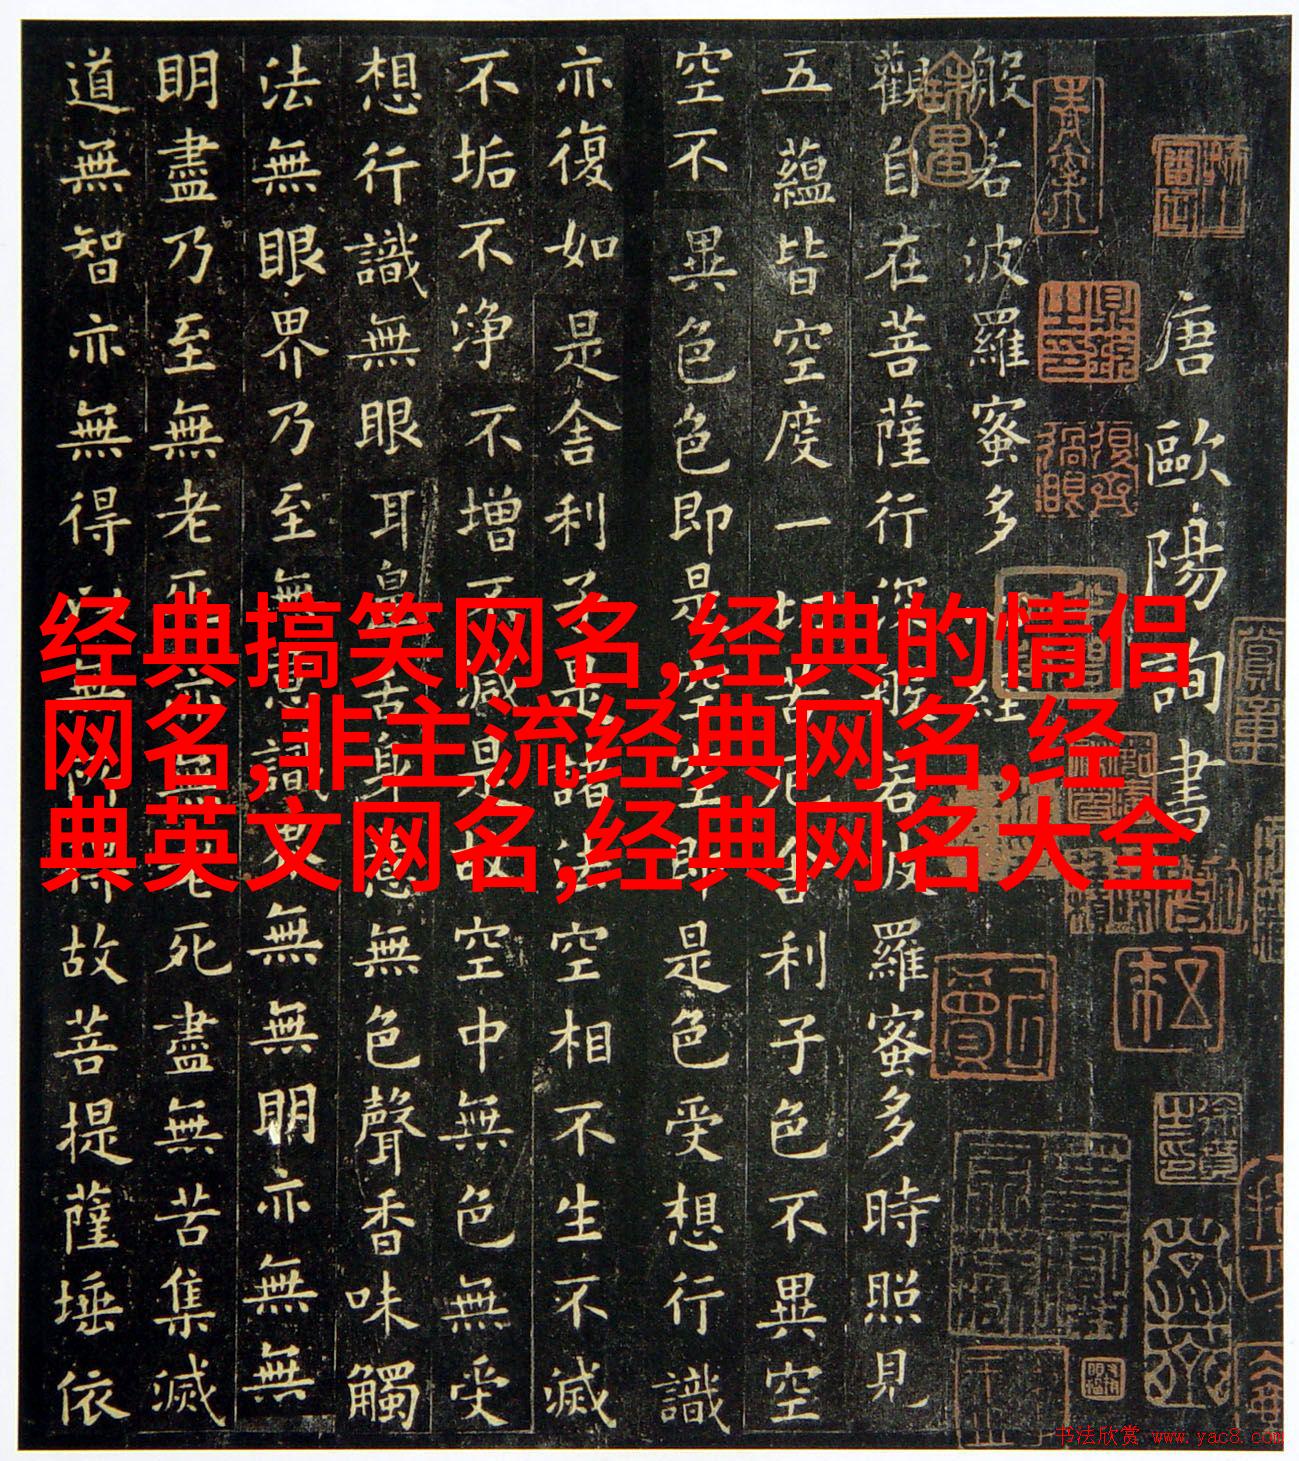 唐歐陽詢書
般若波羅蜜多心經
觀自在菩薩行深般若波羅蜜多時照見
五蘊皆空度一切苦厄舍利子色不異空
空不異色色即是空空即是色受想行識
亦復如是舍利子是諸法空相不生不滅
不垢不淨不增不減是故空中無色無受
想行識無眼耳鼻舌身意無色聲香味觸
法無眼界乃至無意識界無無明亦無無
明盡乃至無老死亦無老死盡無苦集滅
道無智亦無得以無所得故菩提薩埵依
经典搞笑网名,经典的情侣
网名,非主流经典网名,经
典英文网名,经典网名大全
书法欣赏 www.yac8.com